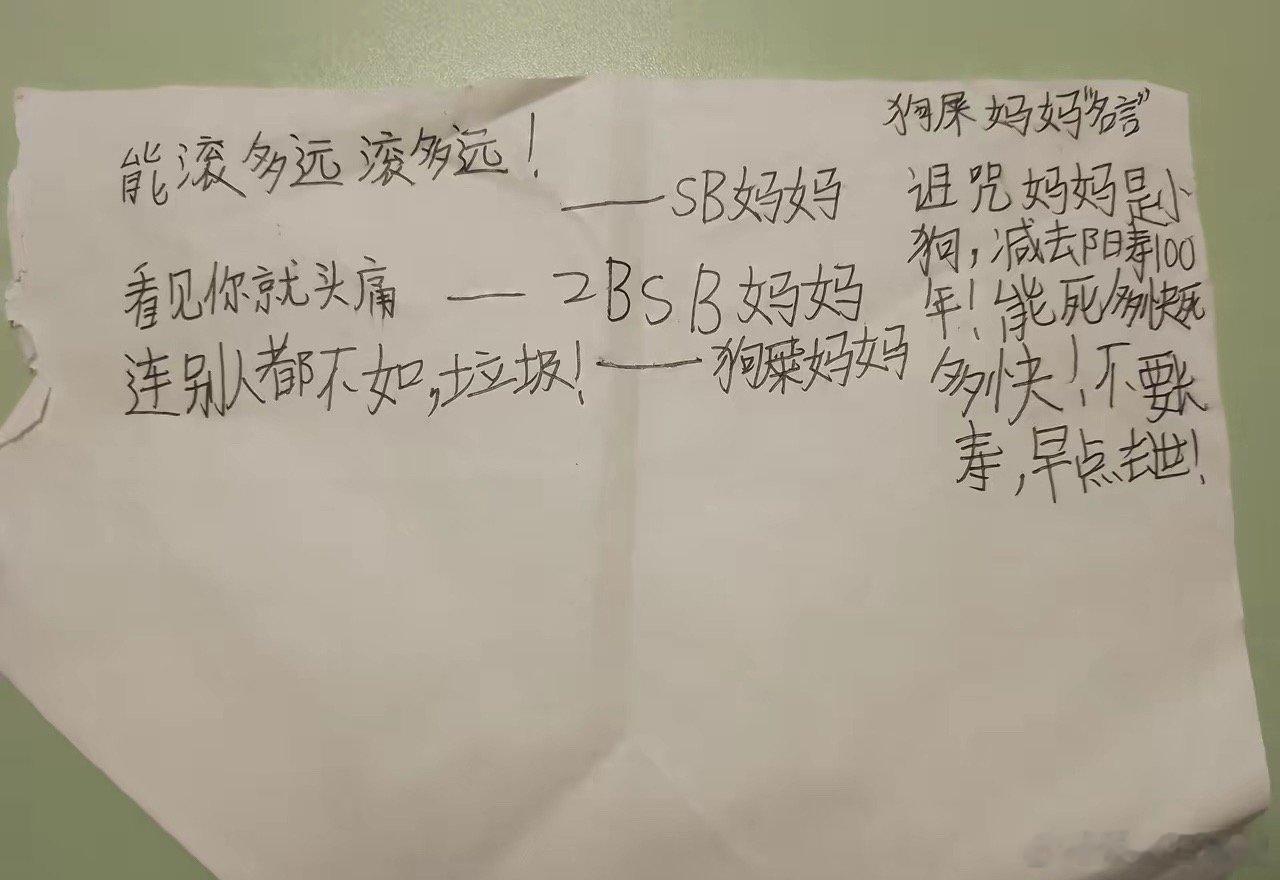 能滚多远滚多远！
——SB妈妈
看见你就头痛 —— 2BSB妈妈
连别人都不如，垃圾！——狗屎妈妈
狗屎妈妈“名言”
诅咒妈妈是小
狗，减去阳寿100
年！能死多快死
多快！不要长
寿，早点去世！